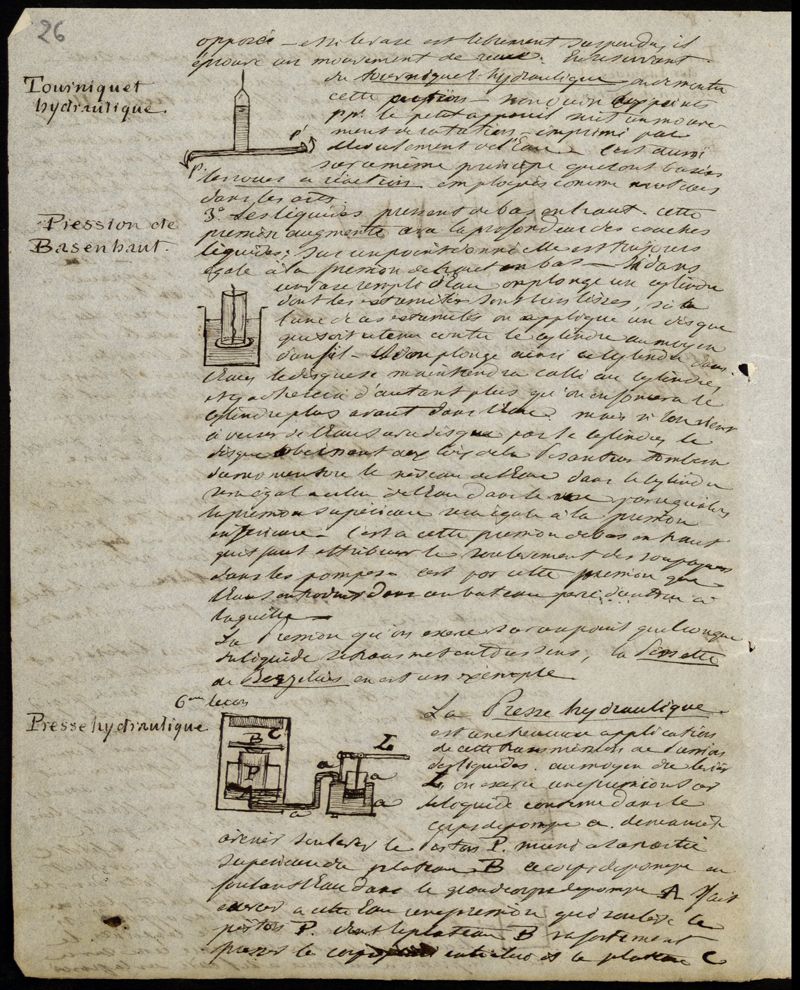 26
opposée - et si le vase est librement suspendu, il
éprouve un mouvement de recul. En observant
Tourniquet
hydraulique
du tourniquet hydraulique on démontre
cette pression
p p' le petit appareil suit un mouve-
ment de rotation imprimé par
l'écoulement de l'eau - C'est aussi
sur ce même principe que sont basées
les roues à réaction employées comme moteurs
dans les arts.
p
p'
Pression de
Bas en haut.
3° Les liquides pressent de bas en haut. Cette
pression augmente avec la profondeur des couches
liquides; sur un point donné elle est toujours
égale à la pression de haut en bas - Si dans
un vase rempli d'eau on plonge un cylindre
dont les extrémités sont bien libres, si à
l'une de ces extrémités on applique un disque
qui soit retenu contre le cylindre au moyen
d'un fil - Si l'on plonge ainsi ce cylindre dans
l'eau, le disque se maintiendra collé au cylindre,
et y adhérera d'autant plus qu'on enfoncera le
cylindre plus avant dans l'eau. mais si l'on vient
à verser de l'eau sur le disque par le cylindre, le
disque obéissant aux lois de la pesanteur tombera
du moment où le niveau de l'eau dans le cylindre
sera égal à celui de l'eau dans le vase parce qu'alors
la pression supérieure sera égale à la pression
inférieure - C'est à cette pression de bas en haut
qu'il faut attribuer le soulèvement des soupapes
dans les pompes. C'est par cette pression que
l'eau s'introduit dans un bateau
laquelle
La Pression qu'on exerce sur un point quelconque
du liquide se transmet en tous sens; la Pissette
de Berzelius en est un exemple.
6me leçon
Presse hydraulique
B C
P
L
a
a
a
a
La Presse hydraulique
est une heureuse application
de cette transmission de pression
des liquides. au moyen du levier
L, on exerce une pression sur
le liquide contenu dans le
corps de pompe a. de manière
à venir soulever le piston P. muni à sa partie
supérieure du plateau B Le corps de pompe en
foulant l'eau dans le grand corps de pompe A fait
exercer à cette eau une pression qui soulève le
piston P. dont le plateau B va fortement
presser le corps entre lui et le plateau C